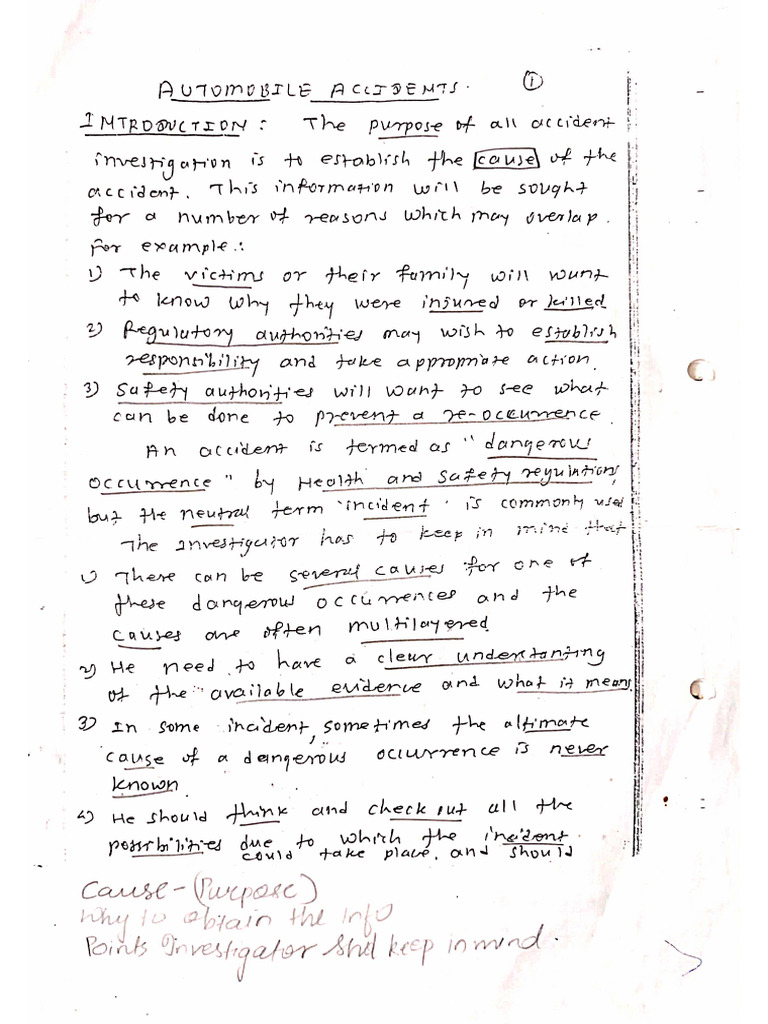 AUTOMOBILE ACCIDENTS. 1
INTRODUCTION: The purpose of all accident
investigation is to establish the cause of the
accident. This information will be sought
for a number of reasons which may overlap.
For example:
1) The victims or their family will want
to know why they were injured or killed
2) Regulatory authorities may wish to establish
responsibility and take appropriate action.
3) Safety authorities will want to see what
can be done to prevent a re-occurrence.
An accident is termed as "dangerous
occurrence" by Health and Safety regulations,
but the neutral term 'incident' is commonly used
The Investigator has to keep in mind that
1) There can be several causes for one of
these dangerous occurrences and the
causes are often multilayered
2) He need to have a clear understanting
of the available evidence and what it means
3) In some incident, sometimes the altimate
cause of a dangerous occurrence is never
known.
4) He should think and check out all the
possibilities due to which the incident
could take place, and should
Cause - (Purpose)
Why to obtain the Info
Points Investigator Shd keep in mind.